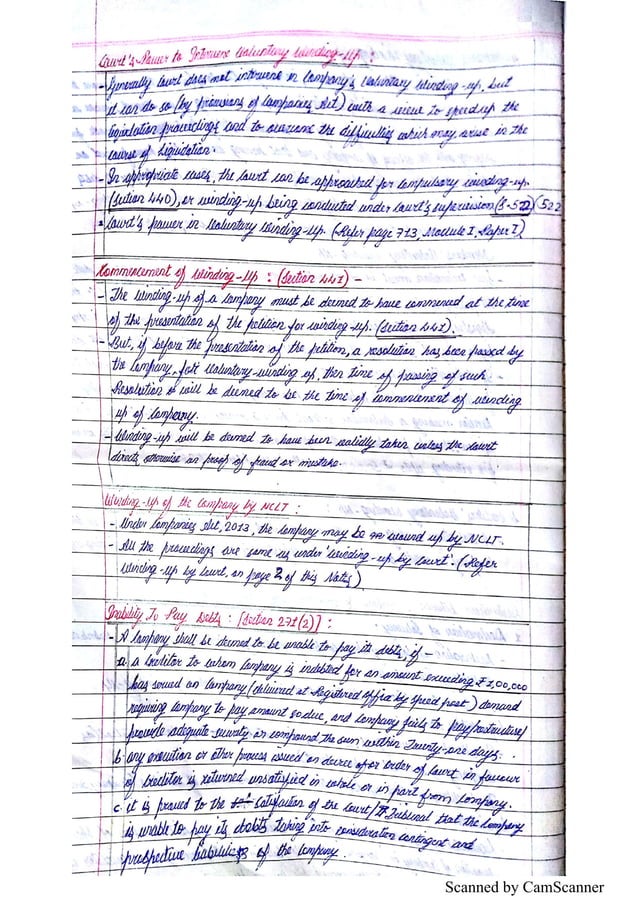 Court's Power to Intervene Voluntary Winding-Up :
- Generally Court does not intervene in Company's Voluntary Winding-up, but
it can do so (by provisions of Companies Act) with a view to speed up the
liquidation proceedings and to overcome the difficulties which may arise in the
course of liquidation.
- In appropriate cases, the Court can be approached for compulsory winding-up.
(Section 440), or winding-up being conducted under Court's supervision (S-522) (522
* Court's power in Voluntary Winding-up. (Refer page 713, Module I, Paper I)
Commencement of Winding-Up : (Section 441) -
- The winding-up of a Company must be deemed to have commenced at the time
of the presentation of the petition for winding-up. (Section 441).
- But, if before the presentation of the petition, a resolution has been passed by
the Company, for Voluntary-winding up, then time of passing of such
Resolution will be deemed to be the time of commencement of winding
up of Company.
- Winding-up will be deemed to have been validly taken unless the Court
directs otherwise on proof of fraud or mistake.
Winding-up of the Company by NCLT :
- Under Companies Act, 2013, the Company may be wound up by NCLT.
- All the proceedings are same as under 'winding-up by Court'. (Refer
Winding-up by Court, on page 2 of this Notes)
Inability To Pay Debts : [Section 271(2)] :
- A Company shall be deemed to be unable to pay its debts, if -
a. a Creditor to whom Company is indebted for an amount exceeding ₹1,00,000
has served on Company (delivered at Registered Office by speed post) demand
requiring Company to pay amount so due, and Company fails to pay/restructure/
provide adequate security or compound the sum within Twenty-one days.
b. any execution or other process issued on decree or order of Court in favour
of Creditor is returned unsatisfied in whole or in part from Company.
c. it is proved to the Satisfaction of the Court/Tribunal that the Company
is unable to pay its debts taking into consideration contingent and
prospective liabilities of the Company.
Scanned by CamScanner